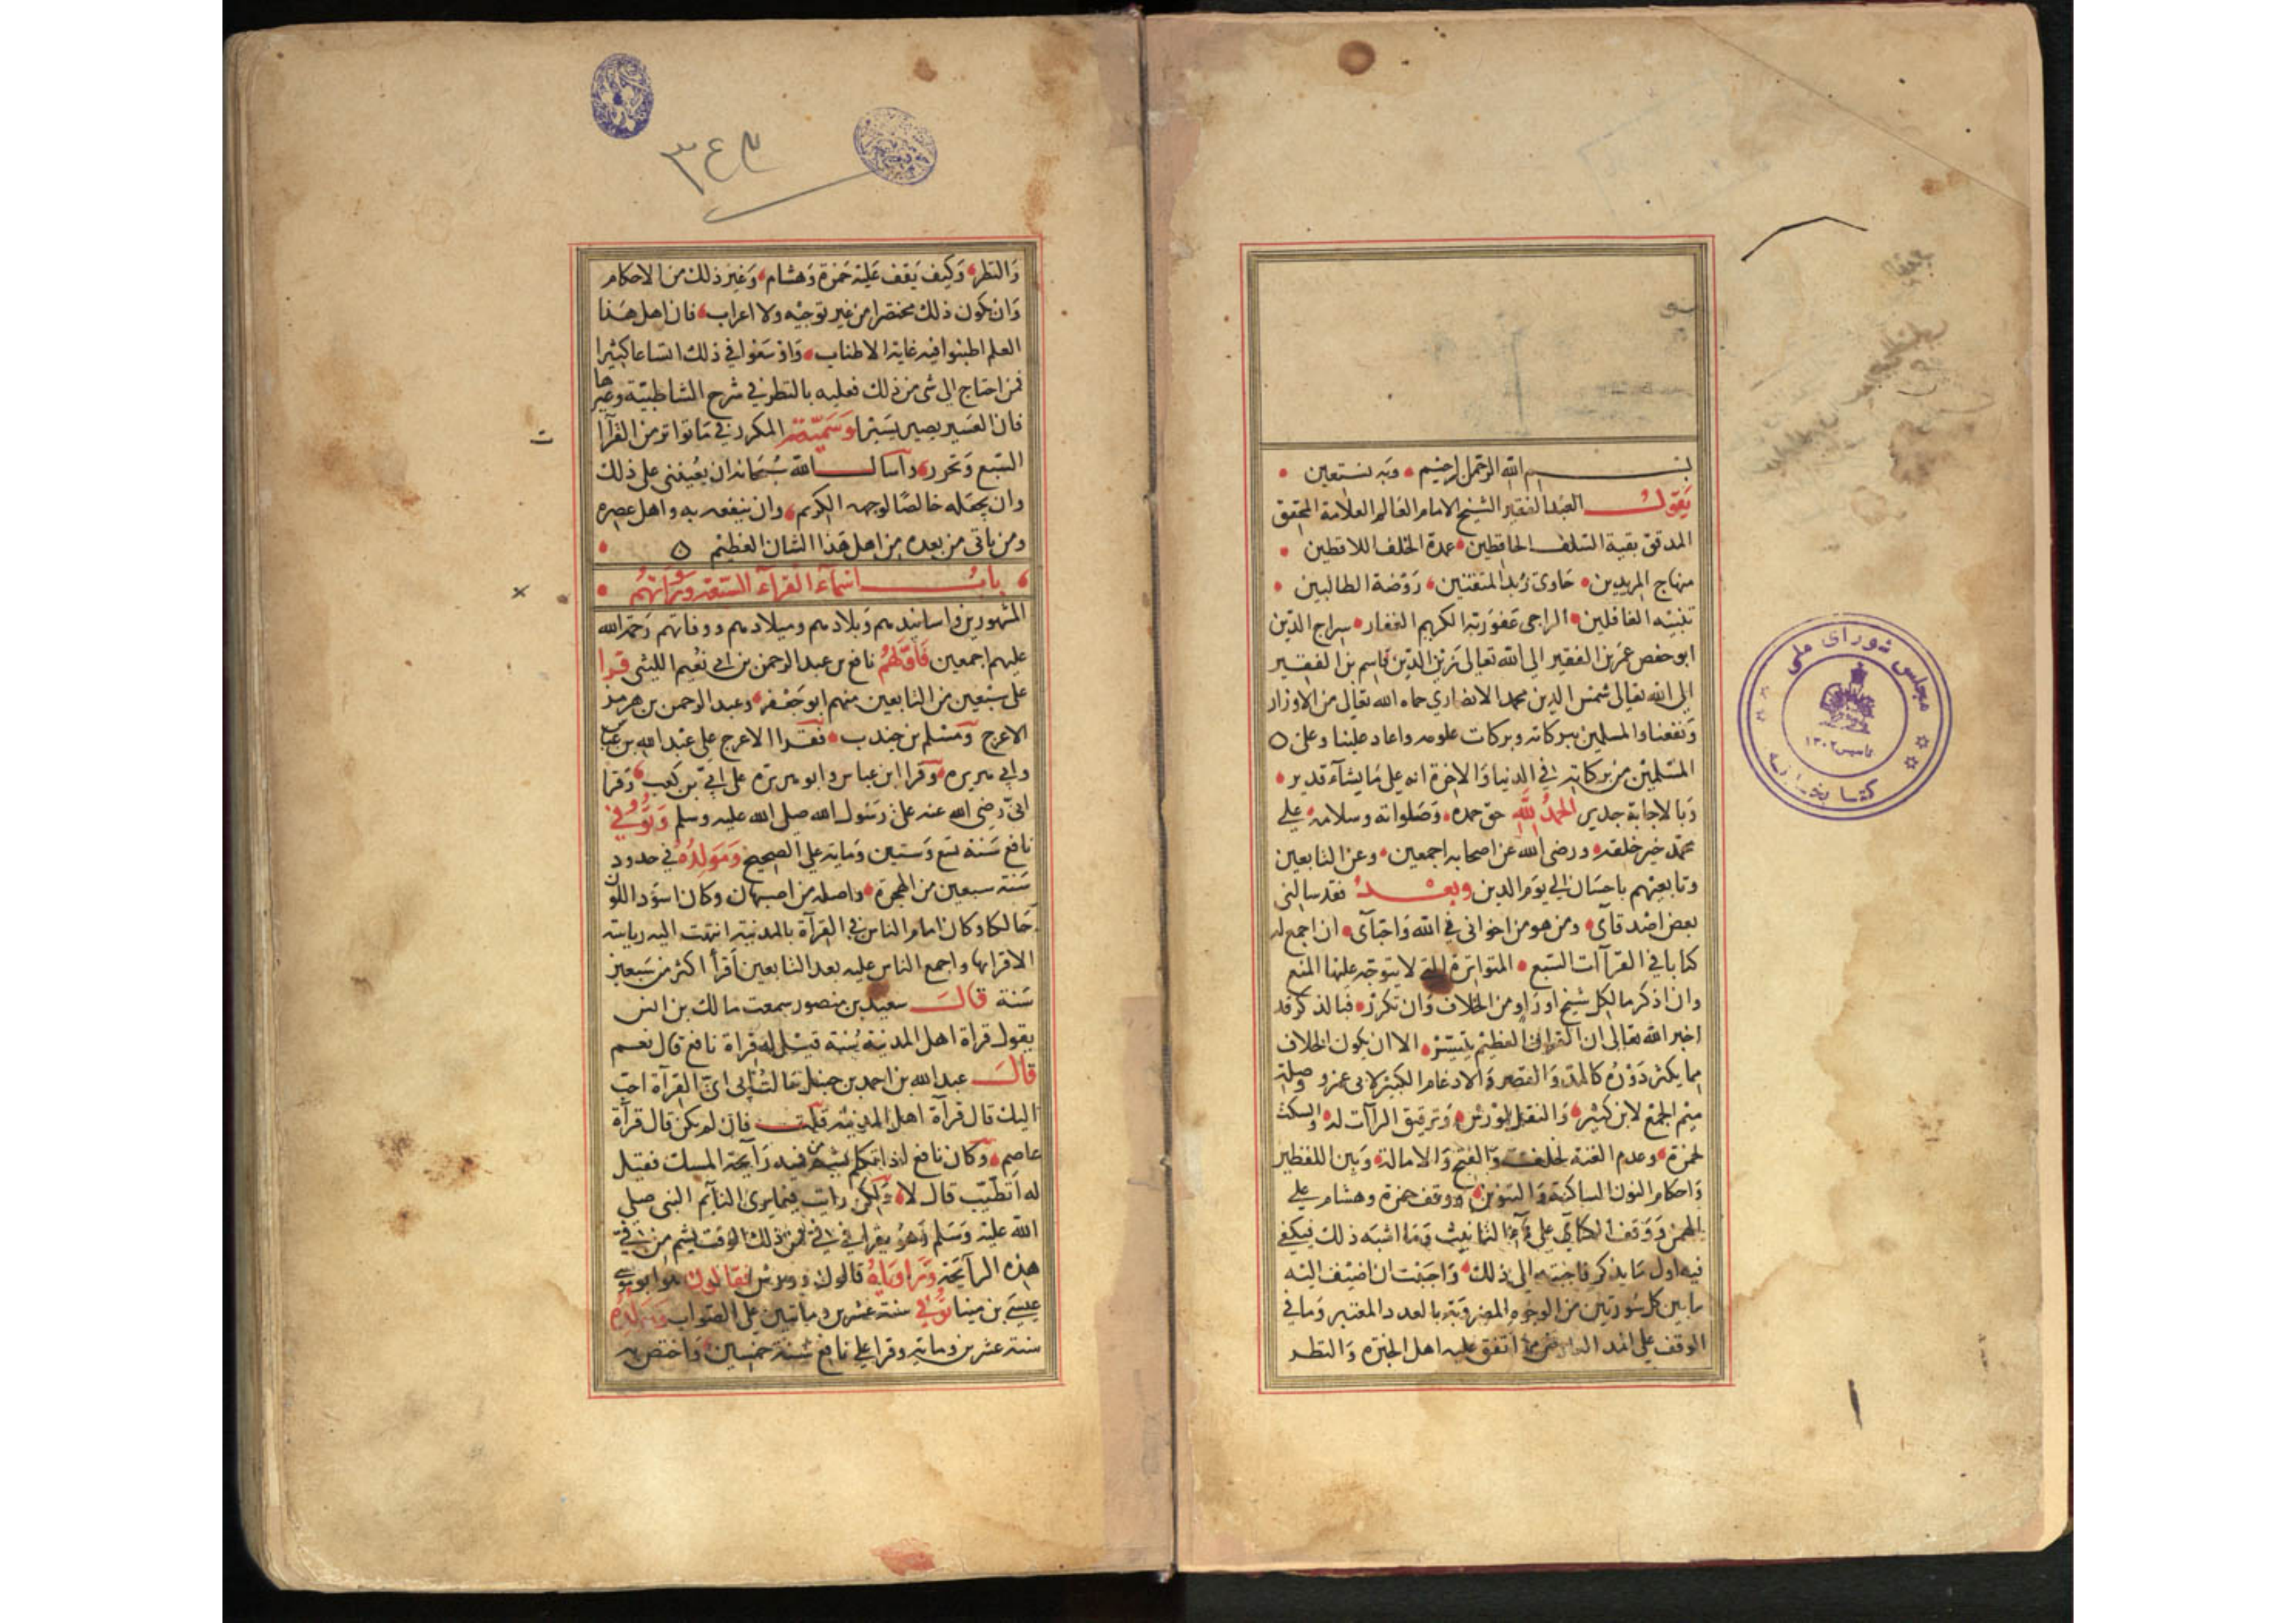 بسم الله الرحمن الرحيم وبه نستعين
يقول العبد الفقير الشيخ الامام العالم العلامة المحقق
المدقق بقية السلف الحافظين عمدة الخلف اللاقطين
منهاج المريدين حاوى زبد المتقنين روضة الطالبين
تنبيه الغافلين الراجى عفو ربه الكريم الغفار سراج الدين
ابو حفص عمر بن الفقير الى الله تعالى زين الدين قاسم بن الفقير
الى الله تعالى شمس الدين محمد الانصاري حماه الله تعالى من الاوزار
ونفعنا والمسلمين ببركاته وبركات علومه واعاد علينا وعلى
المسلمين من بركاته في الدنيا والاخرة انه على ما يشآء قدير
وبالاجابة جدير الحمد لله حق حمده وصلواته وسلامه على
محمد خير خلقه ورضى الله عن اصحابه اجمعين وعن التابعين
وتابعيهم باحسان الى يوم الدين وبعد فقد سالنى
بعض اصدقآى ومن هو من اخوانى في الله واحبآى ان اجمع له
كتابا في القرآات السبع المتواترة التي لا يتوجه عليها المنع
وان اذكر ما لكل شيخ او راو من الخلاف وان تكرر فبالذكر قد
اخبر الله تعالى ان القران العظيم يتيسر الا ان يكون الخلاف
مما يكثر دوره كالمد والقصر والادغام الكبير لابى عمرو وصلة
ميم الجمع لابن كثير والنقل لورش وترقيق الرآات له والسكت
لحمزة وعدم الغنه لخلف والفتح والامالة وبين اللفظين
واحكام النون الساكنة والتنوين ووقف حمزة وهشام على
الهمز ووقف الكسآي على هآء التانيث وما اشبه ذلك فيكفي
فيه اول ما يذكر فاجبته الى ذلك واحببت ان اضيف اليه
ما بين كل سورتين من الوجوه المضروبة بالعدد المعتبر وما في
الوقف على المد العارض مما اتفق عليه اهل الخبره والنظر
مجلس شوراى ملى
تاسيس ١٣٠٢
كتابخانه
٣٤٣
والنظر وكيف يقف عليه حمزة وهشام وغير ذلك من الاحكام
وان يكون ذلك مختصرا من غير توجيه ولا اعراب فان اهل هذا
العلم اطنبوا فيه غاية الاطناب واوسعوا في ذلك اتساعا كثيرا
فمن احتاج الى شى من ذلك فعليه بالنظر في شرح الشاطبية وغيرها
فان العسير يصير يسيرا وسميته المكرر في ما تواتر من القرآات
السبع وتحرر واسال الله سبحانه ان يعيننى على ذلك
وان يجعله خالصا لوجهه الكريم وان ينفعه به واهل عصره
ومن ياتى من بعده من اهل هذا الشان العظيم
باب اسمآء القرآء السبعة ورواتهم
المشهورين واسانيدهم وبلادهم وميلادهم ووفاتهم رحمة الله
عليهم اجمعين فاولهم نافع بن عبد الرحمن بن ابي نعيم الليثي قرا
على سبعين من التابعين منهم ابو جعفر وعبد الرحمن بن هرمز
الاعرج ومسلم بن جندب فقرا الاعرج على عبد الله بن عباس
وابي هريره وقرا ابن عباس وابو هريره على ابي بن كعب وقرا
ابى رضى الله عنه على رسول الله صلى الله عليه وسلم وتوفي
نافع سنة تسع وستين ومايه على الصحيح ومولده في حدود
سنة سبعين من الهجرة واصله من اصبهان وكان اسود اللون
حالكا وكان امام الناس في القرآة بالمدينة انتهت اليه رياسة
الاقرا بها واجمع الناس عليه بعد التابعين أقرأ اكثر من سبعين
سنة قال سعيد بن منصور سمعت مالك بن انس
يقول قراة اهل المدينة سنة قيل له قراة نافع قال نعم
قال عبد الله بن احمد بن حنبل سالت ابى اى القرآة احب
اليك قال قرآة اهل المدينة قلت فان لم يكن قال قرآة
عاصم وكان نافع اذا تكلم يشم من فيه رآيحة المسك فقيل
له أتطيب قال لا ولكن رايت فيما يرى النآيم النبى صلى
الله عليه وسلم وهو يقرا في فيّ فمن ذلك الوقت يشم من في
هذه الرآيحة وراوياه قالون وورش فقالون هو ابو موسى
عيسى بن مينا توفي سنة عشرين ومايتين على الصواب ومولده
سنة عشرين ومايه وقرا على نافع سنة خمسين واختص به